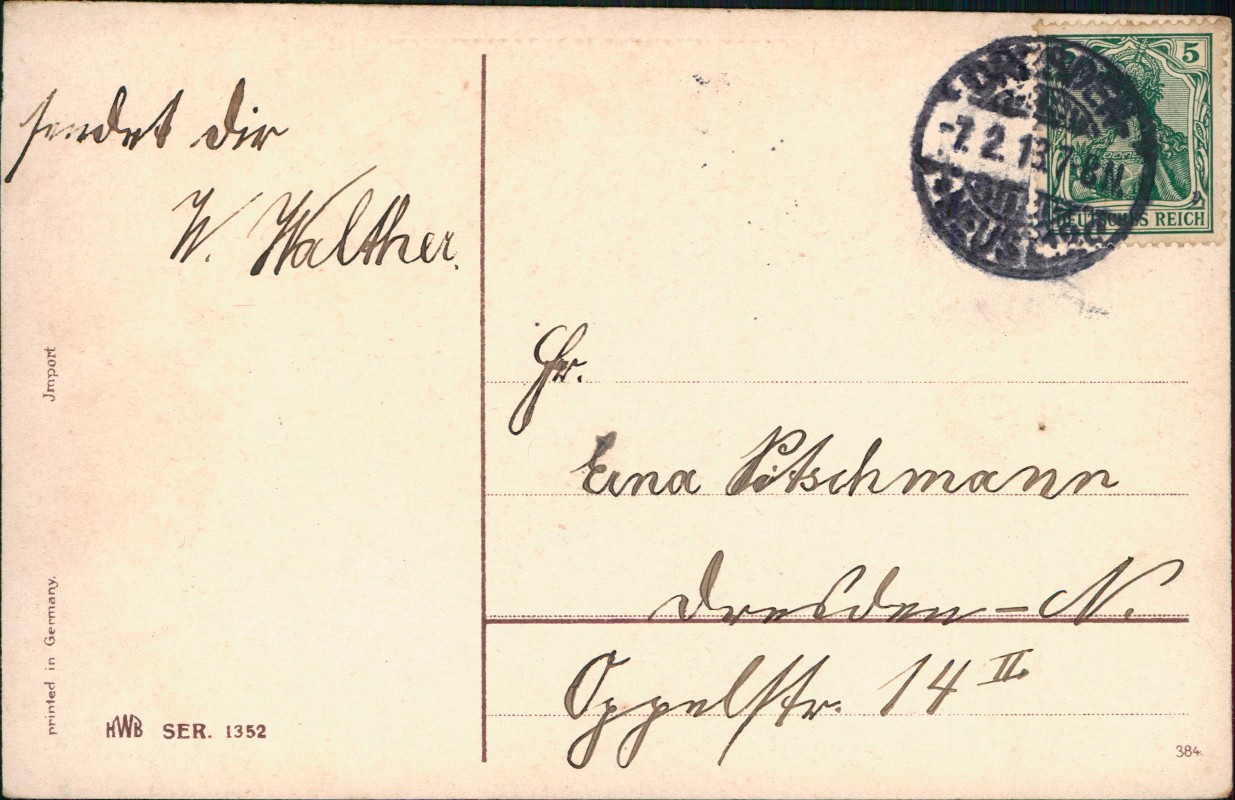 sendet dir
W. Walther.
Jmport
printed in Germany.
HWB SER. 1352
5
DEUTSCHES REICH
DRESDEN
-7. 2. 13. 7-8 N.
NEUST.
Fr.
Erna Pötschmann
Dresden-N.
Oppelstr. 14 II.
384.